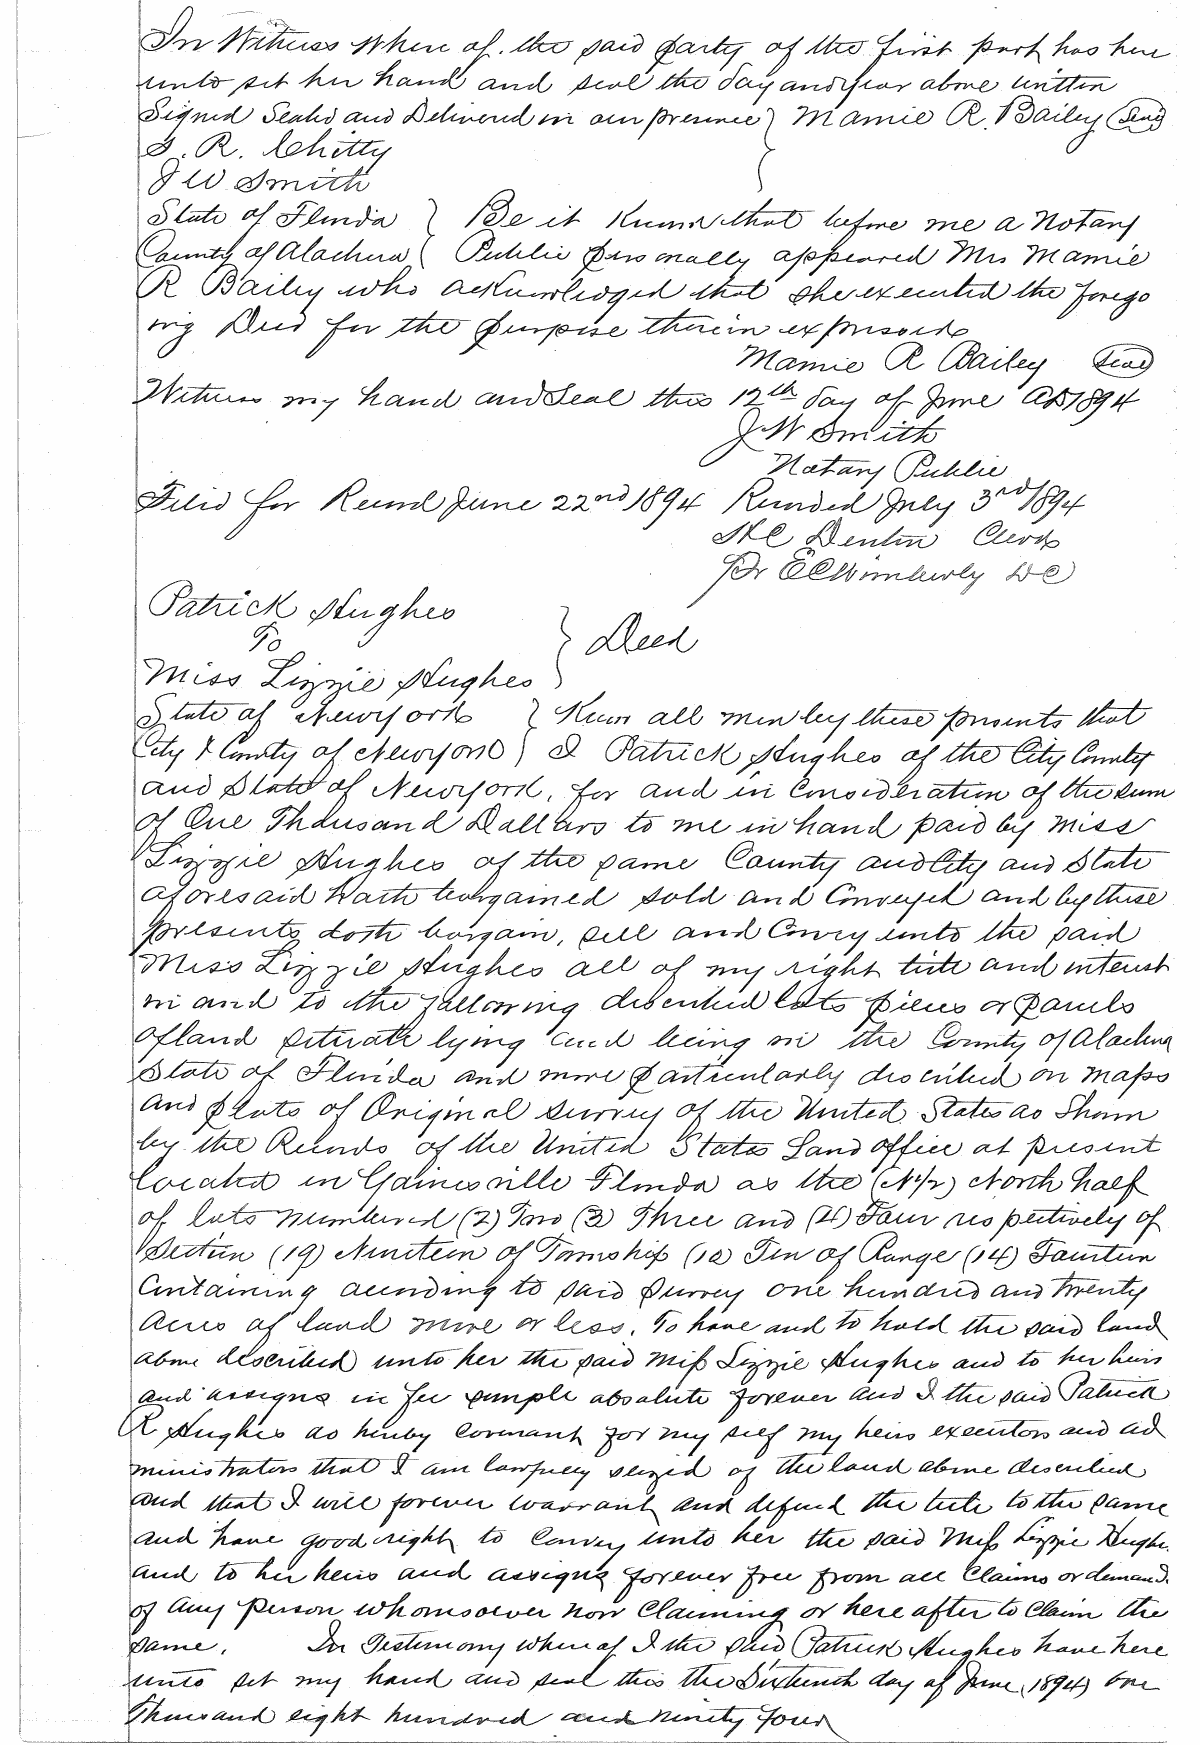 In Witness Where of. the said party of the first part has here
unto set her hand and seal the day and year above written
Signed Sealed and Delivered in our presence } Mamie R. Bailey (Seal)
R. Chitty
J W Smith
State of Florida } Be it Known that before me a Notary
County of Alachua { Public personally appeared Mrs Mamie
R Bailey who acknowledged that she executed the forego
ing Deed for the purpose therein expressed
Mamie R Bailey (Seal)
Witness my hand and Seal this 12th day of June AD 1894
J. W Smith
Notary Public
Filed for Record June 22nd 1894 Recorded July 3rd 1894
H C Denton Clerk
Pr E C Wimberly D C
Patrick Hughes
To } Deed
Miss Lizzie Hughes
State of Newyork } Know all men by these presents that
City & County of Newyork ) I Patrick Hughes of the City County
and State of Newyork, for and in Consideration of the sum
of One Thousand Dollars to me in hand paid by Miss
Lizzie Hughes of the same County and City and State
aforesaid hath bargained sold and Conveyed and by these
presents doth bargain, sell and Convey unto the said
Miss Lizzie Hughes all of my right title and interest
in and to the following described lots pieces or parcels
of land situate lying and being in the County of Alachua
State of Florida and more particularly described on maps
and plats of Original survey of the United States as Shown
by the Records of the United States Land office at present
located in Gainesville Florida as the (N/2) North half
of lots numbered (2) Two (3) Three and (4) Four respectively of
Section (19) Nineteen of Township (10) Ten of Range (14) Fourteen
Containing according to said Survey one hundred and twenty
Acres of land more or less. To have and to hold the said land
above described unto her the said Miss Lizzie Hughes and to her heirs
and assigns in fee simple absolute forever and I the said Patrick
R Hughes do hereby covenant for my self my heirs executors and ad
ministrators that I am lawfully seized of the land above described
and that I will forever warrant and defend the title to the same
and have good right to Convey unto her the said Miss Lizzie Hughes
and to her heirs and assigns forever free from all Claims or demands
of any person whomsoever now Claiming or here after to Claim the
same. In Testimony where of I the said Patrick Hughes have here
unto set my hand and seal this the Sixteenth day of June (1894) one
Thousand eight hundred and ninety four